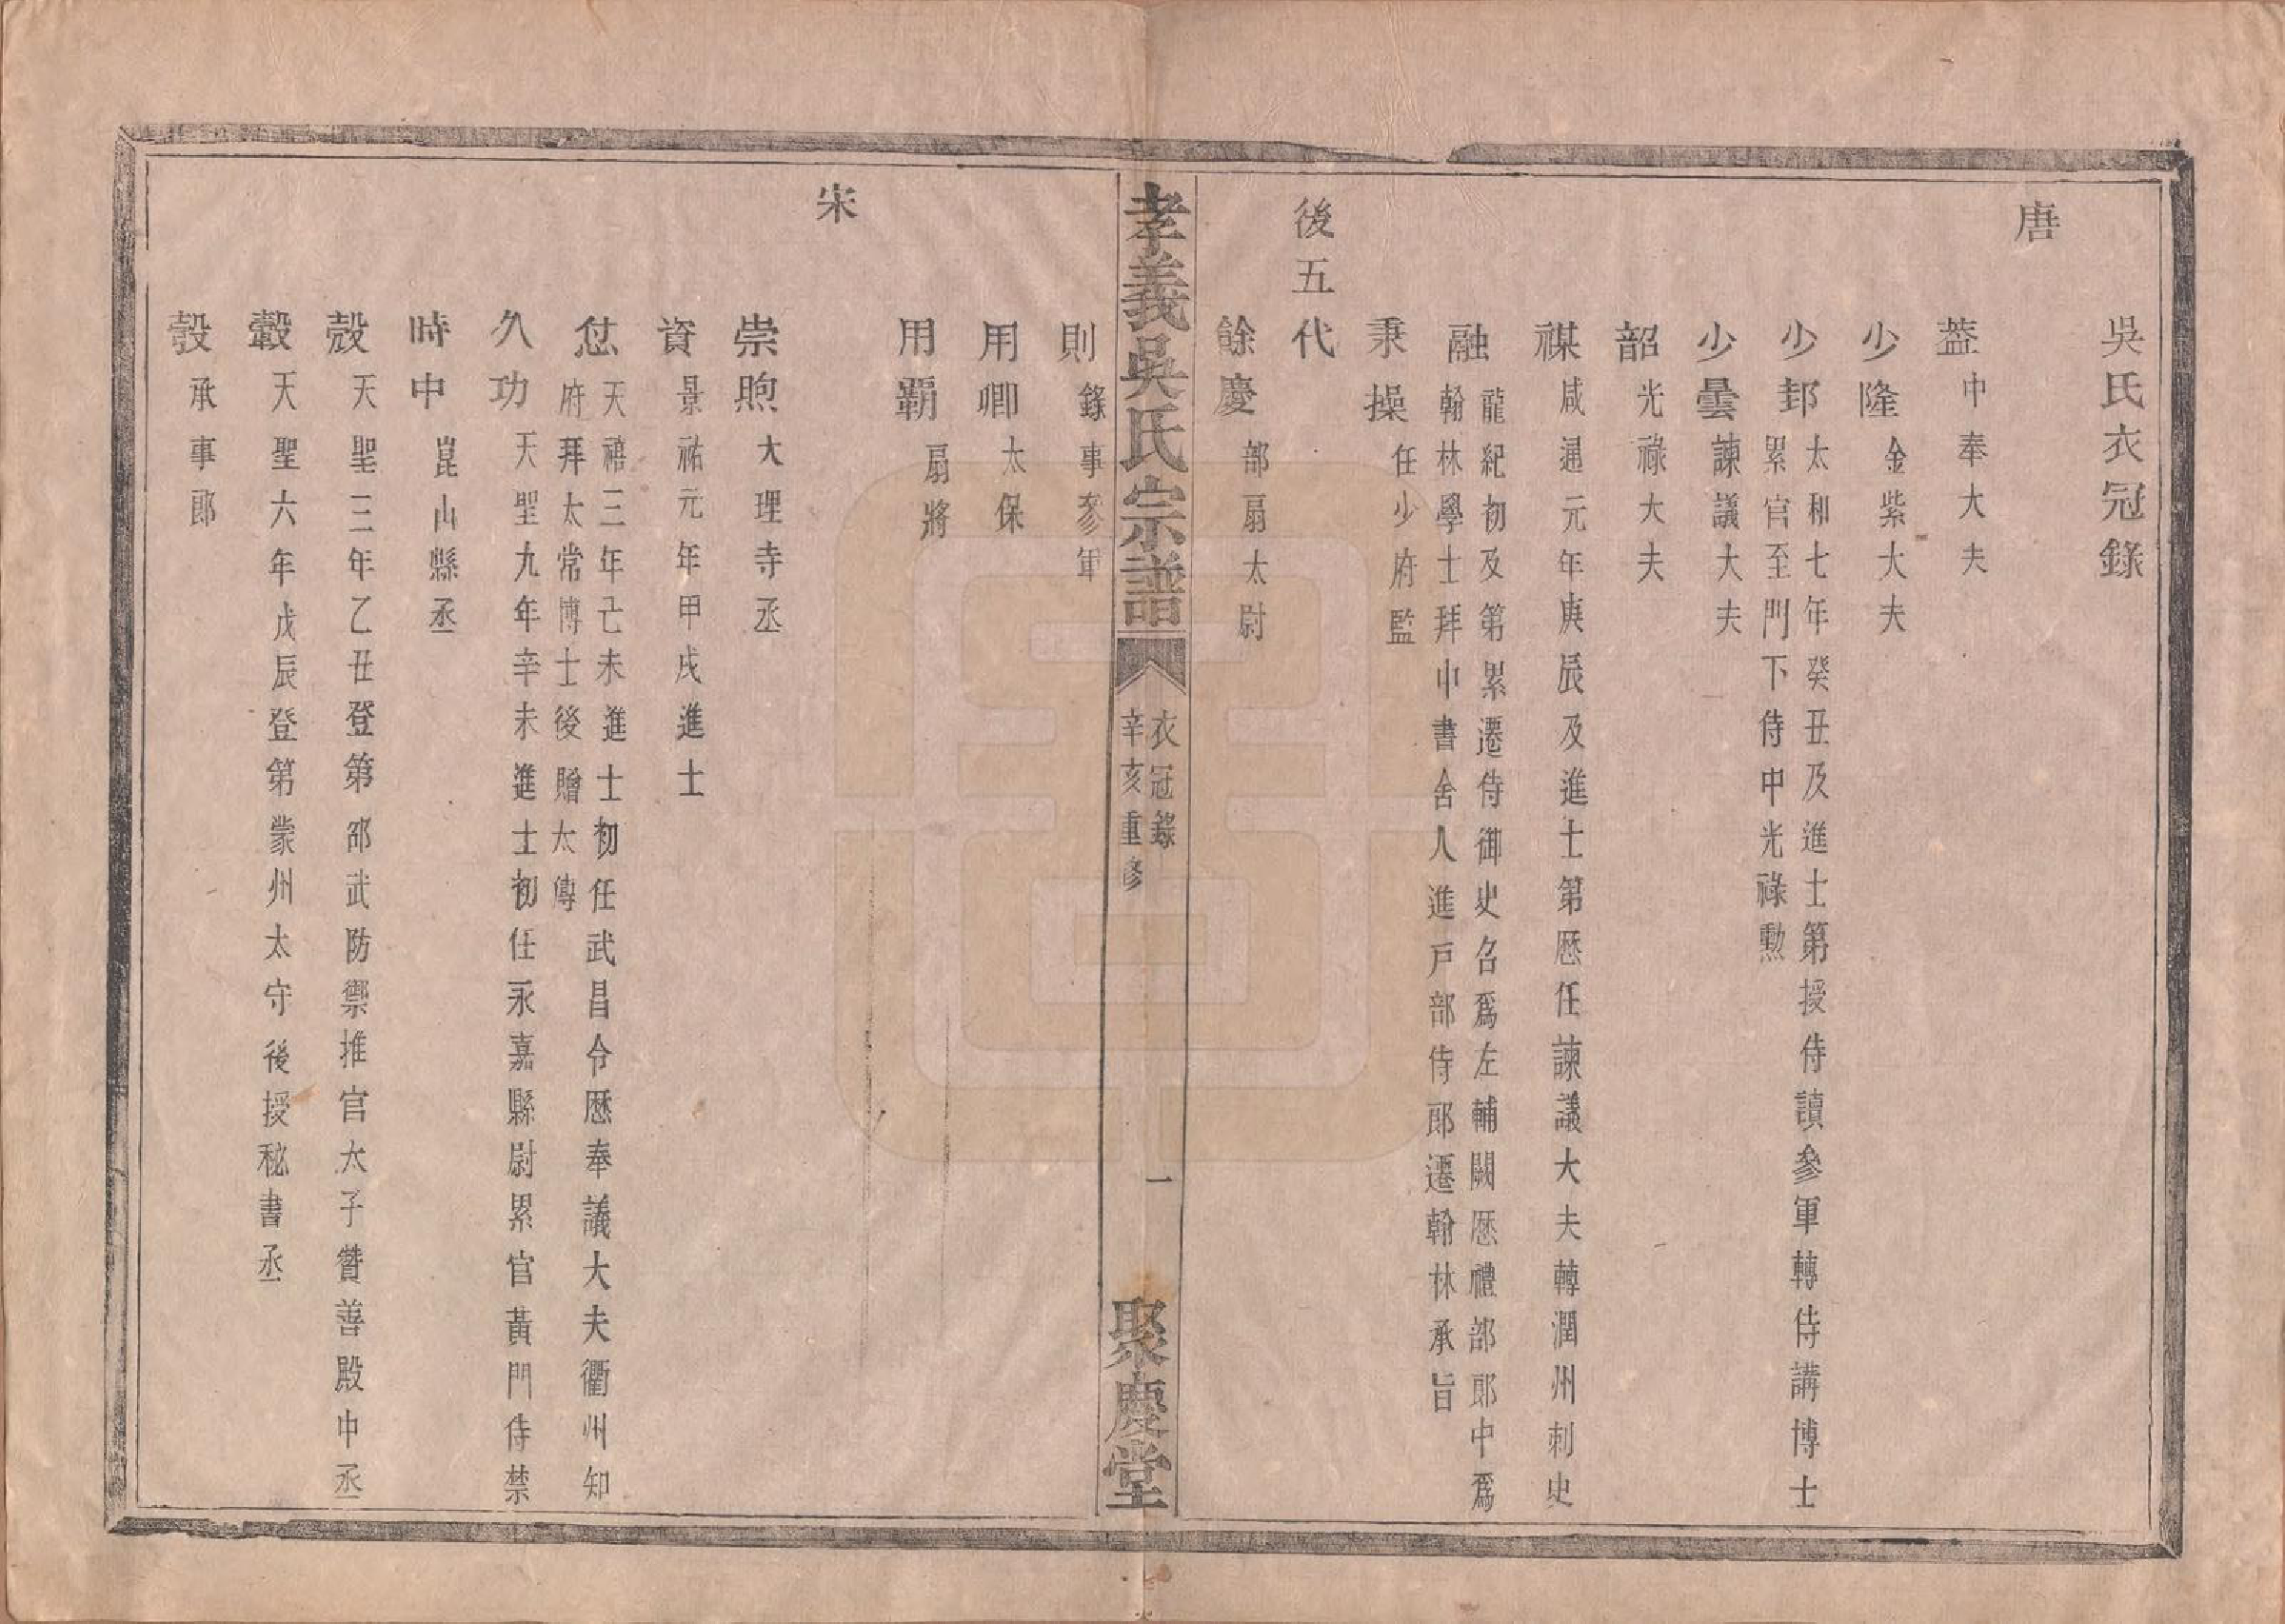 吳氏衣冠錄
唐
葢 中奉大夫
少隆 金紫大夫
少邦 太和七年癸丑及進士第授侍讀參軍轉侍講博士
累官至門下侍中光祿勲
少曇 諫議大夫
韶 光祿大夫
禖 咸通元年庚辰及進士第歷任諫議大夫轉潤州刺史
融 龍紀初及第累遷侍御史名爲左輔闕歷禮部郎中爲
翰林學士拜中書舍人進戶部侍郎遷翰林承旨
秉操 任少府監
後五代
餘慶 部扇太尉
孝義吳氏宗譜
衣冠錄
辛亥重修
一
聚慶堂
則 錄事參軍
用卿 太保
用覇 扇將
宋
崇煦 大理寺丞
資 景祐元年甲戌進士
忿 天禧三年己未進士初任武昌令歷奉議大夫衢州知
府拜太常博士後贈太傅
久功 天聖九年辛未進士初任永嘉縣尉累官黃門侍禁
時中 崑山縣丞
殼 天聖三年乙丑登第邵武防禦推官太子贊善殿中丞
轂 天聖六年戊辰登第蒙州太守後授秘書丞
彀 承事郎